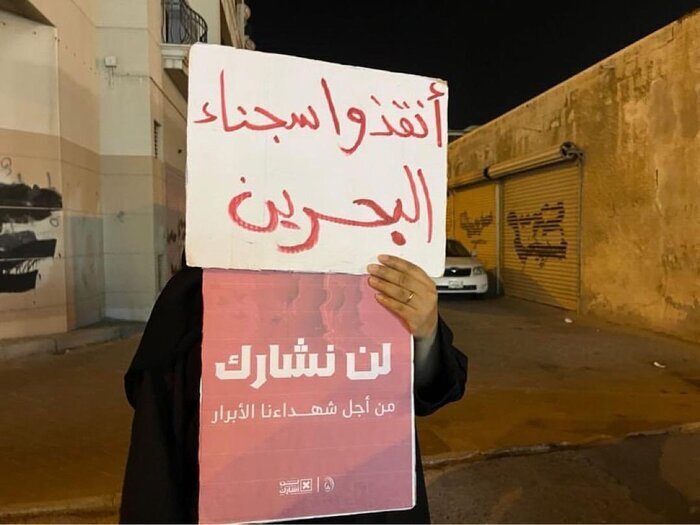 أنقذوا سجناء
البحرين
لن نشارك
من أجل شهداءنا الأبرار